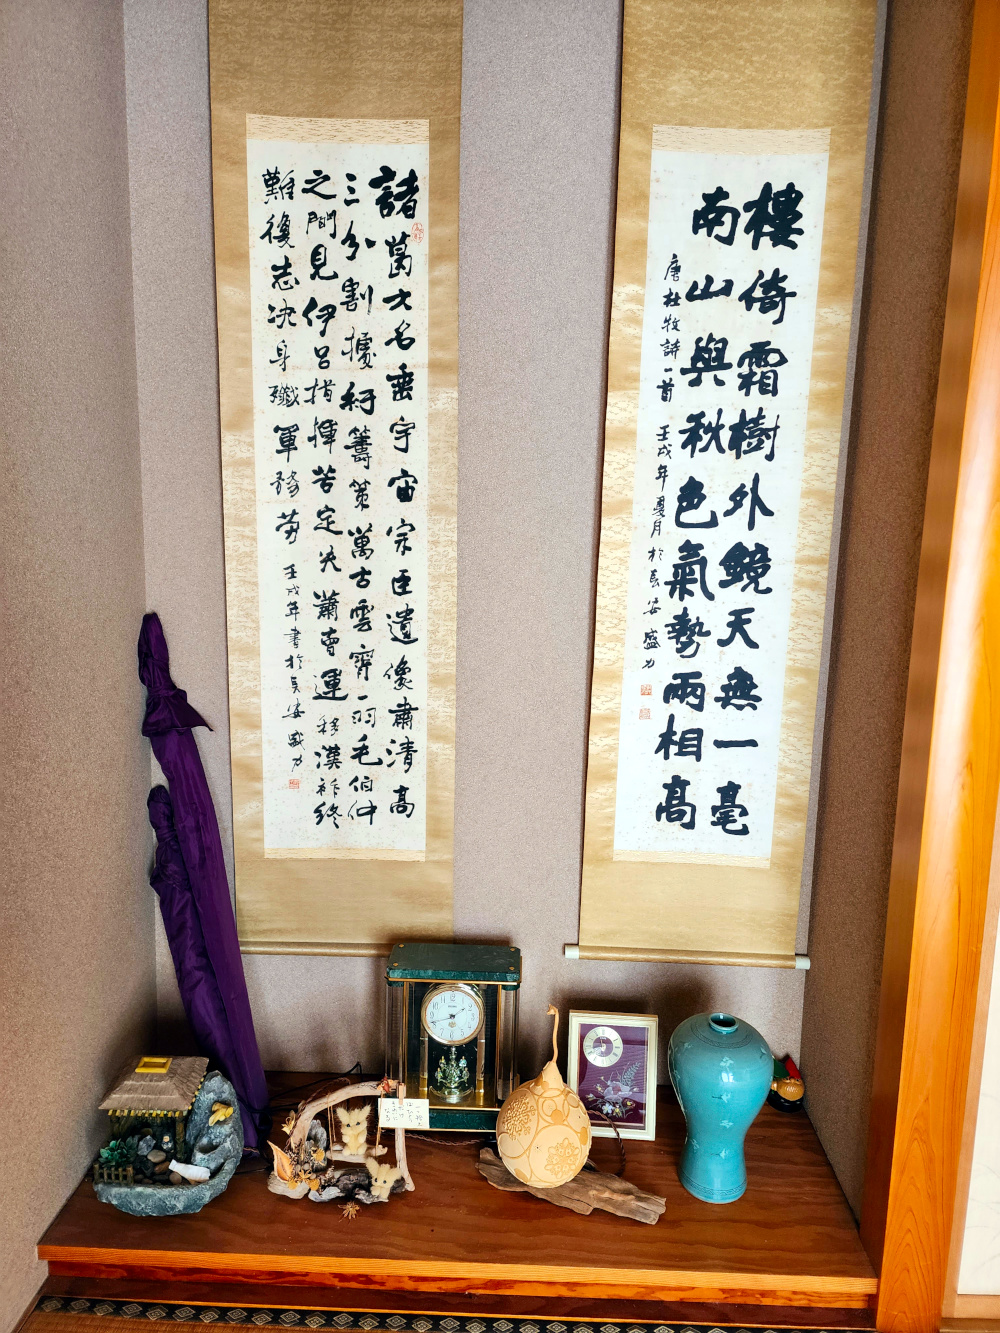 樓倚霜樹外鏡天無一毫
南山與秋色氣勢兩相高
唐杜牧詩一首
壬戌年夏月於長安 盛力
諸葛大名垂宇宙宗臣遺像肅清高
三分割據紆籌策萬古雲霄一羽毛伯仲
之間見伊呂指揮若定失蕭曹運移漢祚終
難復志決身殲軍務勞
壬戌年書於長安盛力